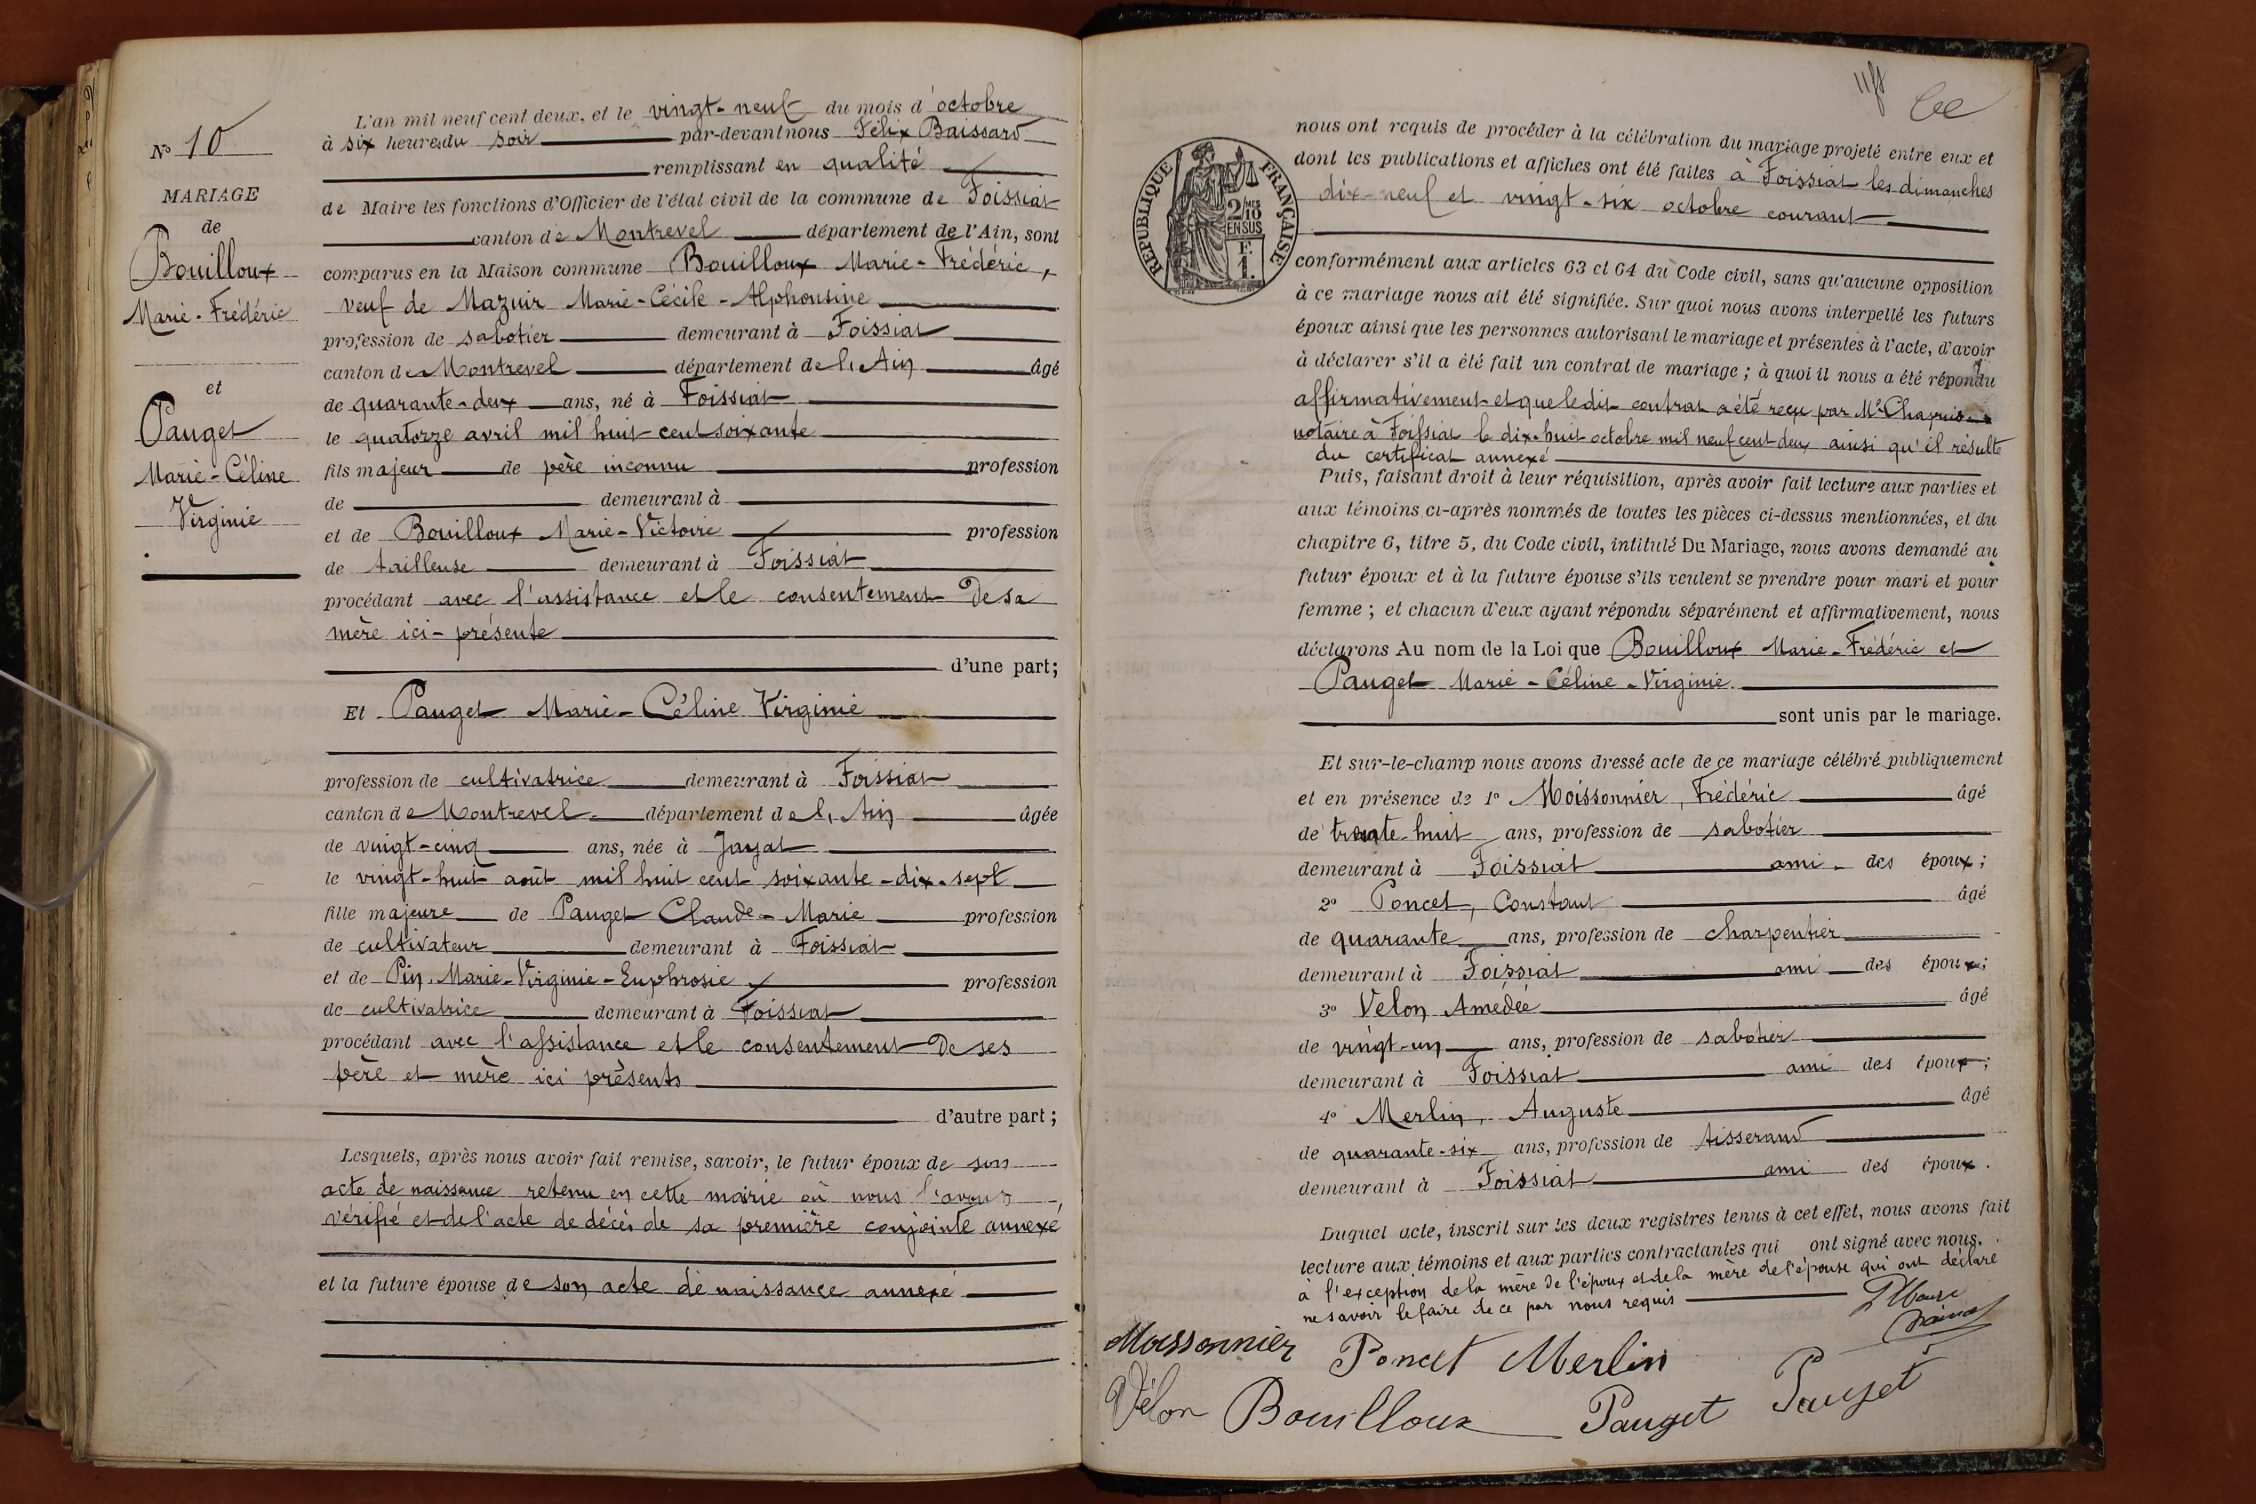 N° 10
MARIAGE
de
Bouilloux
Marie-Frédéric
et
Pauget
Marie-Céline
Virginie
L'an mil neuf cent deux, et le vingt-neuf du mois d'octobre
à six heures du soir par-devant nous Félix Baissard
remplissant en qualité
de Maire les fonctions d'Officier de l'état civil de la commune de Foissiat
canton de Montrevel département de l'Ain, sont
comparus en la Maison commune Bouilloux Marie-Frédéric,
veuf de Mazuir Marie-Cécile-Alphonsine
profession de sabotier demeurant à Foissiat
canton de Montrevel département de l'Ain âgé
de quarante-deux ans, né à Foissiat
le quatorze avril mil huit cent soixante
fils majeur de père inconnu profession
de demeurant à
et de Bouilloux Marie-Victoire profession
de tailleuse demeurant à Foissiat
procédant avec l'assistance et le consentement de sa
mère ici-présente
d'une part;
Et Pauget Marie-Céline Virginie
profession de cultivatrice demeurant à Foissiat
canton de Montrevel département de l'Ain âgée
de vingt-cinq ans, née à Jayat
le vingt-huit août mil huit cent soixante-dix-sept
fille majeure de Pauget Claude-Marie profession
de cultivateur demeurant à Foissiat
et de Pin Marie-Virginie-Euphrosie profession
de cultivatrice demeurant à Foissiat
procédant avec l'assistance et le consentement de ses
père et mère ici présents
d'autre part;
Lesquels, après nous avoir fait remise, savoir, le futur époux de son
acte de naissance retenu en cette mairie où nous l'avons
vérifié et de l'acte de décès de sa première conjointe annexé
et la future épouse de son acte de naissance annexé
RÉPUBLIQUE FRANÇAISE
2/10 EN SUS
F. 1.
nous ont requis de procéder à la célébration du mariage projeté entre eux et
dont les publications et affiches ont été faites à Foissiat les dimanches
dix-neuf et vingt-six octobre courant
conformément aux articles 63 et 64 du Code civil, sans qu'aucune opposition
à ce mariage nous ait été signifiée. Sur quoi nous avons interpellé les futurs
époux ainsi que les personnes autorisant le mariage et présentes à l'acte, d'avoir
à déclarer s'il a été fait un contrat de mariage; à quoi il nous a été répondu
affirmativement et que ledit contrat a été reçu par Me Chapuis
notaire à Foissiat le dix-huit octobre mil neuf cent deux ainsi qu'il résulte
du certificat annexé
Puis, faisant droit à leur réquisition, après avoir fait lecture aux parties et
aux témoins ci-après nommés de toutes les pièces ci-dessus mentionnées, et du
chapitre 6, titre 5, du Code civil, intitulé Du Mariage, nous avons demandé au
futur époux et à la future épouse s'ils veulent se prendre pour mari et pour
femme; et chacun d'eux ayant répondu séparément et affirmativement, nous
déclarons Au nom de la Loi que Bouilloux Marie-Frédéric et
Pauget Marie-Céline-Virginie
sont unis par le mariage.
Et sur-le-champ nous avons dressé acte de ce mariage célébré publiquement
et en présence de 1° Moissonnier, Frédéric âgé
de trente-huit ans, profession de sabotier
demeurant à Foissiat ami des époux;
2° Poncet, Constant âgé
de quarante ans, profession de charpentier
demeurant à Foissiat ami des époux;
3° Velon Amédée âgé
de vingt-un ans, profession de sabotier
demeurant à Foissiat ami des époux;
4° Merlin, Auguste âgé
de quarante-six ans, profession de tisserand
demeurant à Foissiat ami des époux.
Duquel acte, inscrit sur les deux registres tenus à cet effet, nous avons fait
lecture aux témoins et aux parties contractantes qui ont signé avec nous.
à l'exception de la mère de l'époux et de la mère de l'épouse qui ont déclaré
ne savoir le faire de ce par nous requis
Moissonnier Poncet Merlin
Vélon Bouilloux Pauget Pauget